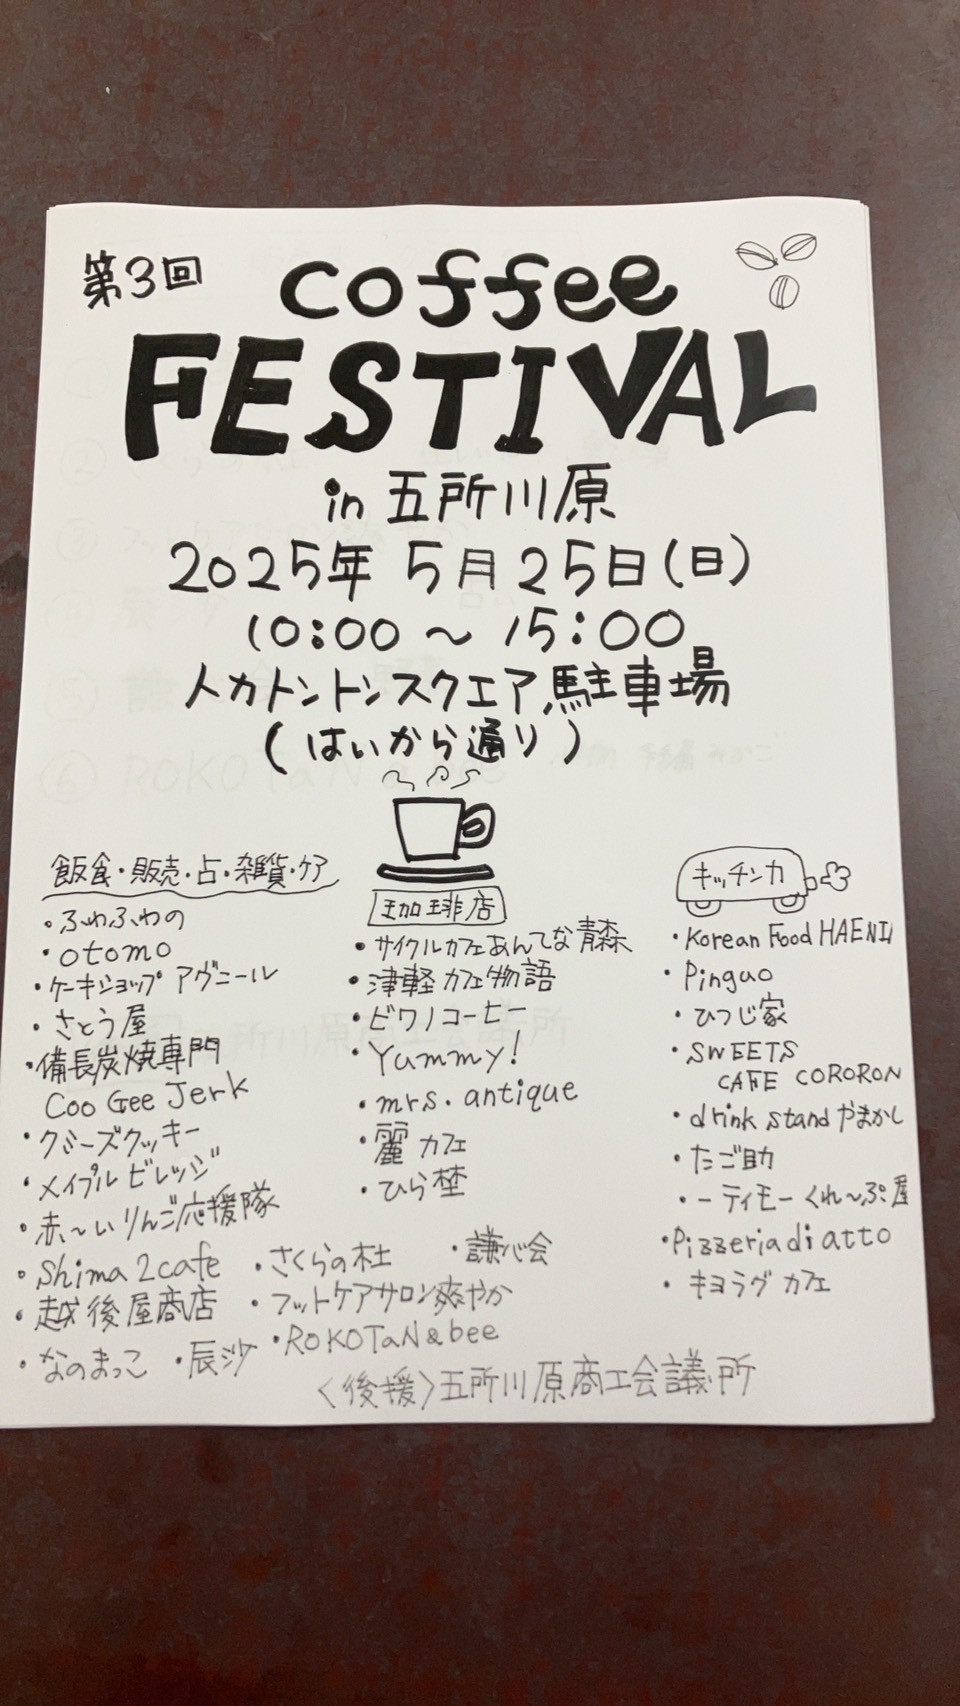 第3回
coffee
FESTIVAL
in 五所川原
2025年 5月25日(日)
10:00 〜 15:00
人カトントンスクエア駐車場
(はいから通り)
飲食・販売・占・雑貨・ケア
・ふわふわの
・otomo
・ケーキショップ アヴニール
・さとう屋
・備長炭焼専門
Coo Gee Jerk
・クミーズクッキー
・メイプルビレッジ
・赤〜いりんご応援隊
・Shima 2 cafe
・越後屋商店
・なのまっこ
・辰沙
・さくらの杜
・フットケアサロン爽やか
・ROKOTaN&bee
・謙心会
珈琲店
・サイクルカフェあんてな青森
・津軽カフェ物語
・ビワノコーヒー
・Yummy!
・mrs. antique
・麗カフェ
・ひら埜
キッチンカー
・Korean Food HAENIM
・Pinguo
・ひつじ家
・SWEETS
CAFE CORORON
・drink stand やまかし
・たご助
・ーティモー くれ〜ぷ屋
・Pizzeria di atto
・キヨラヴ カフェ
〈後援〉五所川原商工会議所